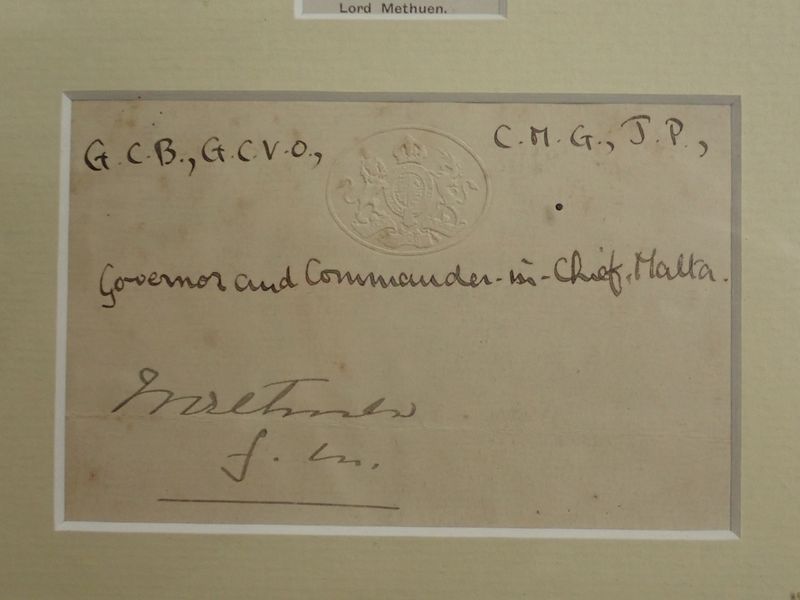 Lord Methuen.
G.C.B., G.C.V.O., C.M.G., J.P.,
Governor and Commander-in-Chief, Malta.
Methuen
f. m.